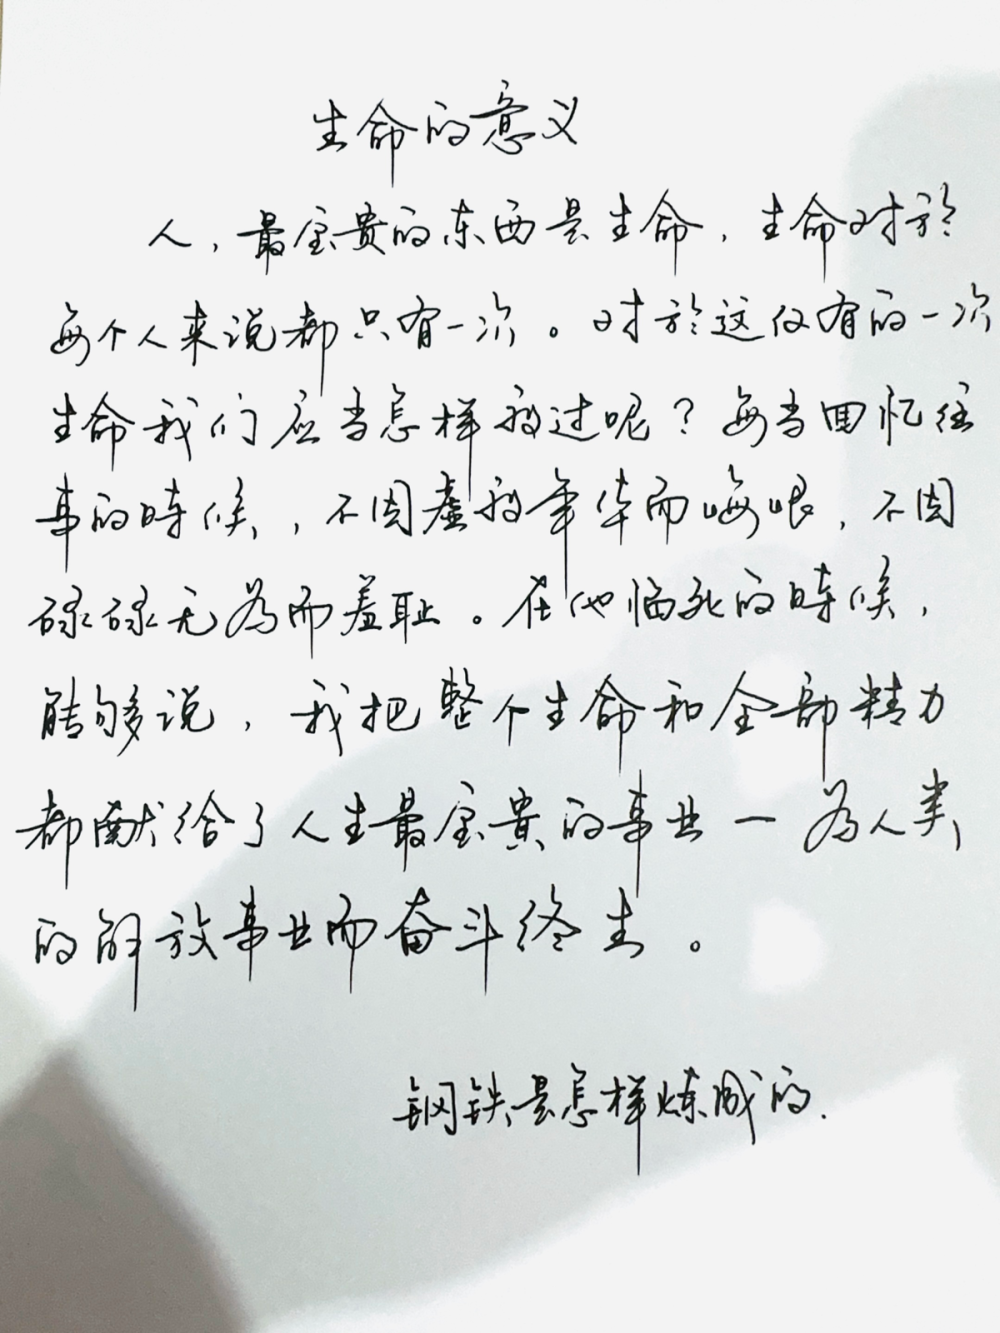 生命的意义
人，最宝贵的东西是生命，生命对於
每个人来说都只有一次。对於这仅有的一次
生命我们应当怎样部过呢？每当回忆往
事的時候，不因虚部年华而悔恨，不因
碌碌无為而羞耻。在他临死的時候，
能够说，我把整个生命和全部精力
都献给了人生最宝贵的事业一為人类
的解放事业而奋斗终生。
钢铁是怎样炼成的.